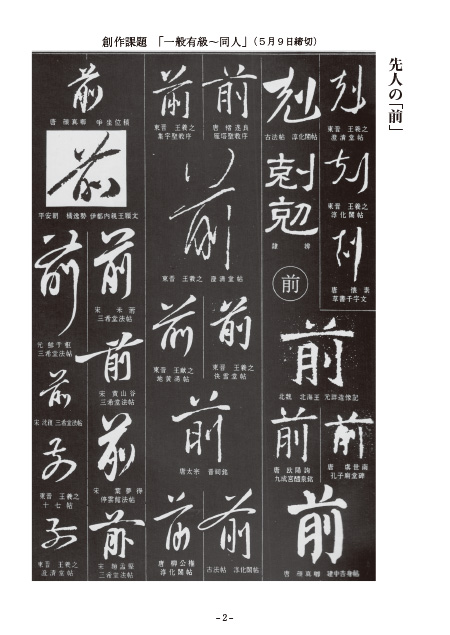 創作課題　「一般有級～同人」（５月９日締切）
先人の「前」
東晋　王羲之
澄清堂帖
東晋　王羲之
淳化閣帖
唐　懐素
草書千字文
古法帖　淳化閣帖
隷辨
前
北魏　北海王　元詳造像記
唐　欧陽詢
九成宮醴泉銘
唐　虞世南
孔子廟堂碑
唐　顔真卿　建中告身帖
唐　褚遂良
雁塔聖教序
東晋　王羲之
集字聖教序
東晋　王羲之　澄清堂帖
東晋　王羲之
快雪堂帖
東晋　王献之
地黄湯帖
唐太宗　晋祠銘
古法帖　淳化閣帖
唐　柳公権
淳化閣帖
唐　顔真卿　争坐位稿
平安朝　橘逸勢　伊都内親王願文
宋　米芾
三希堂法帖
宋　黄山谷
三希堂法帖
宋　葉夢得
停雲館法帖
三希堂法帖
元　鮮于枢
三希堂法帖
三希堂法帖
東晋　王羲之
十七帖
東晋　王羲之
澄清堂帖
- 2 -